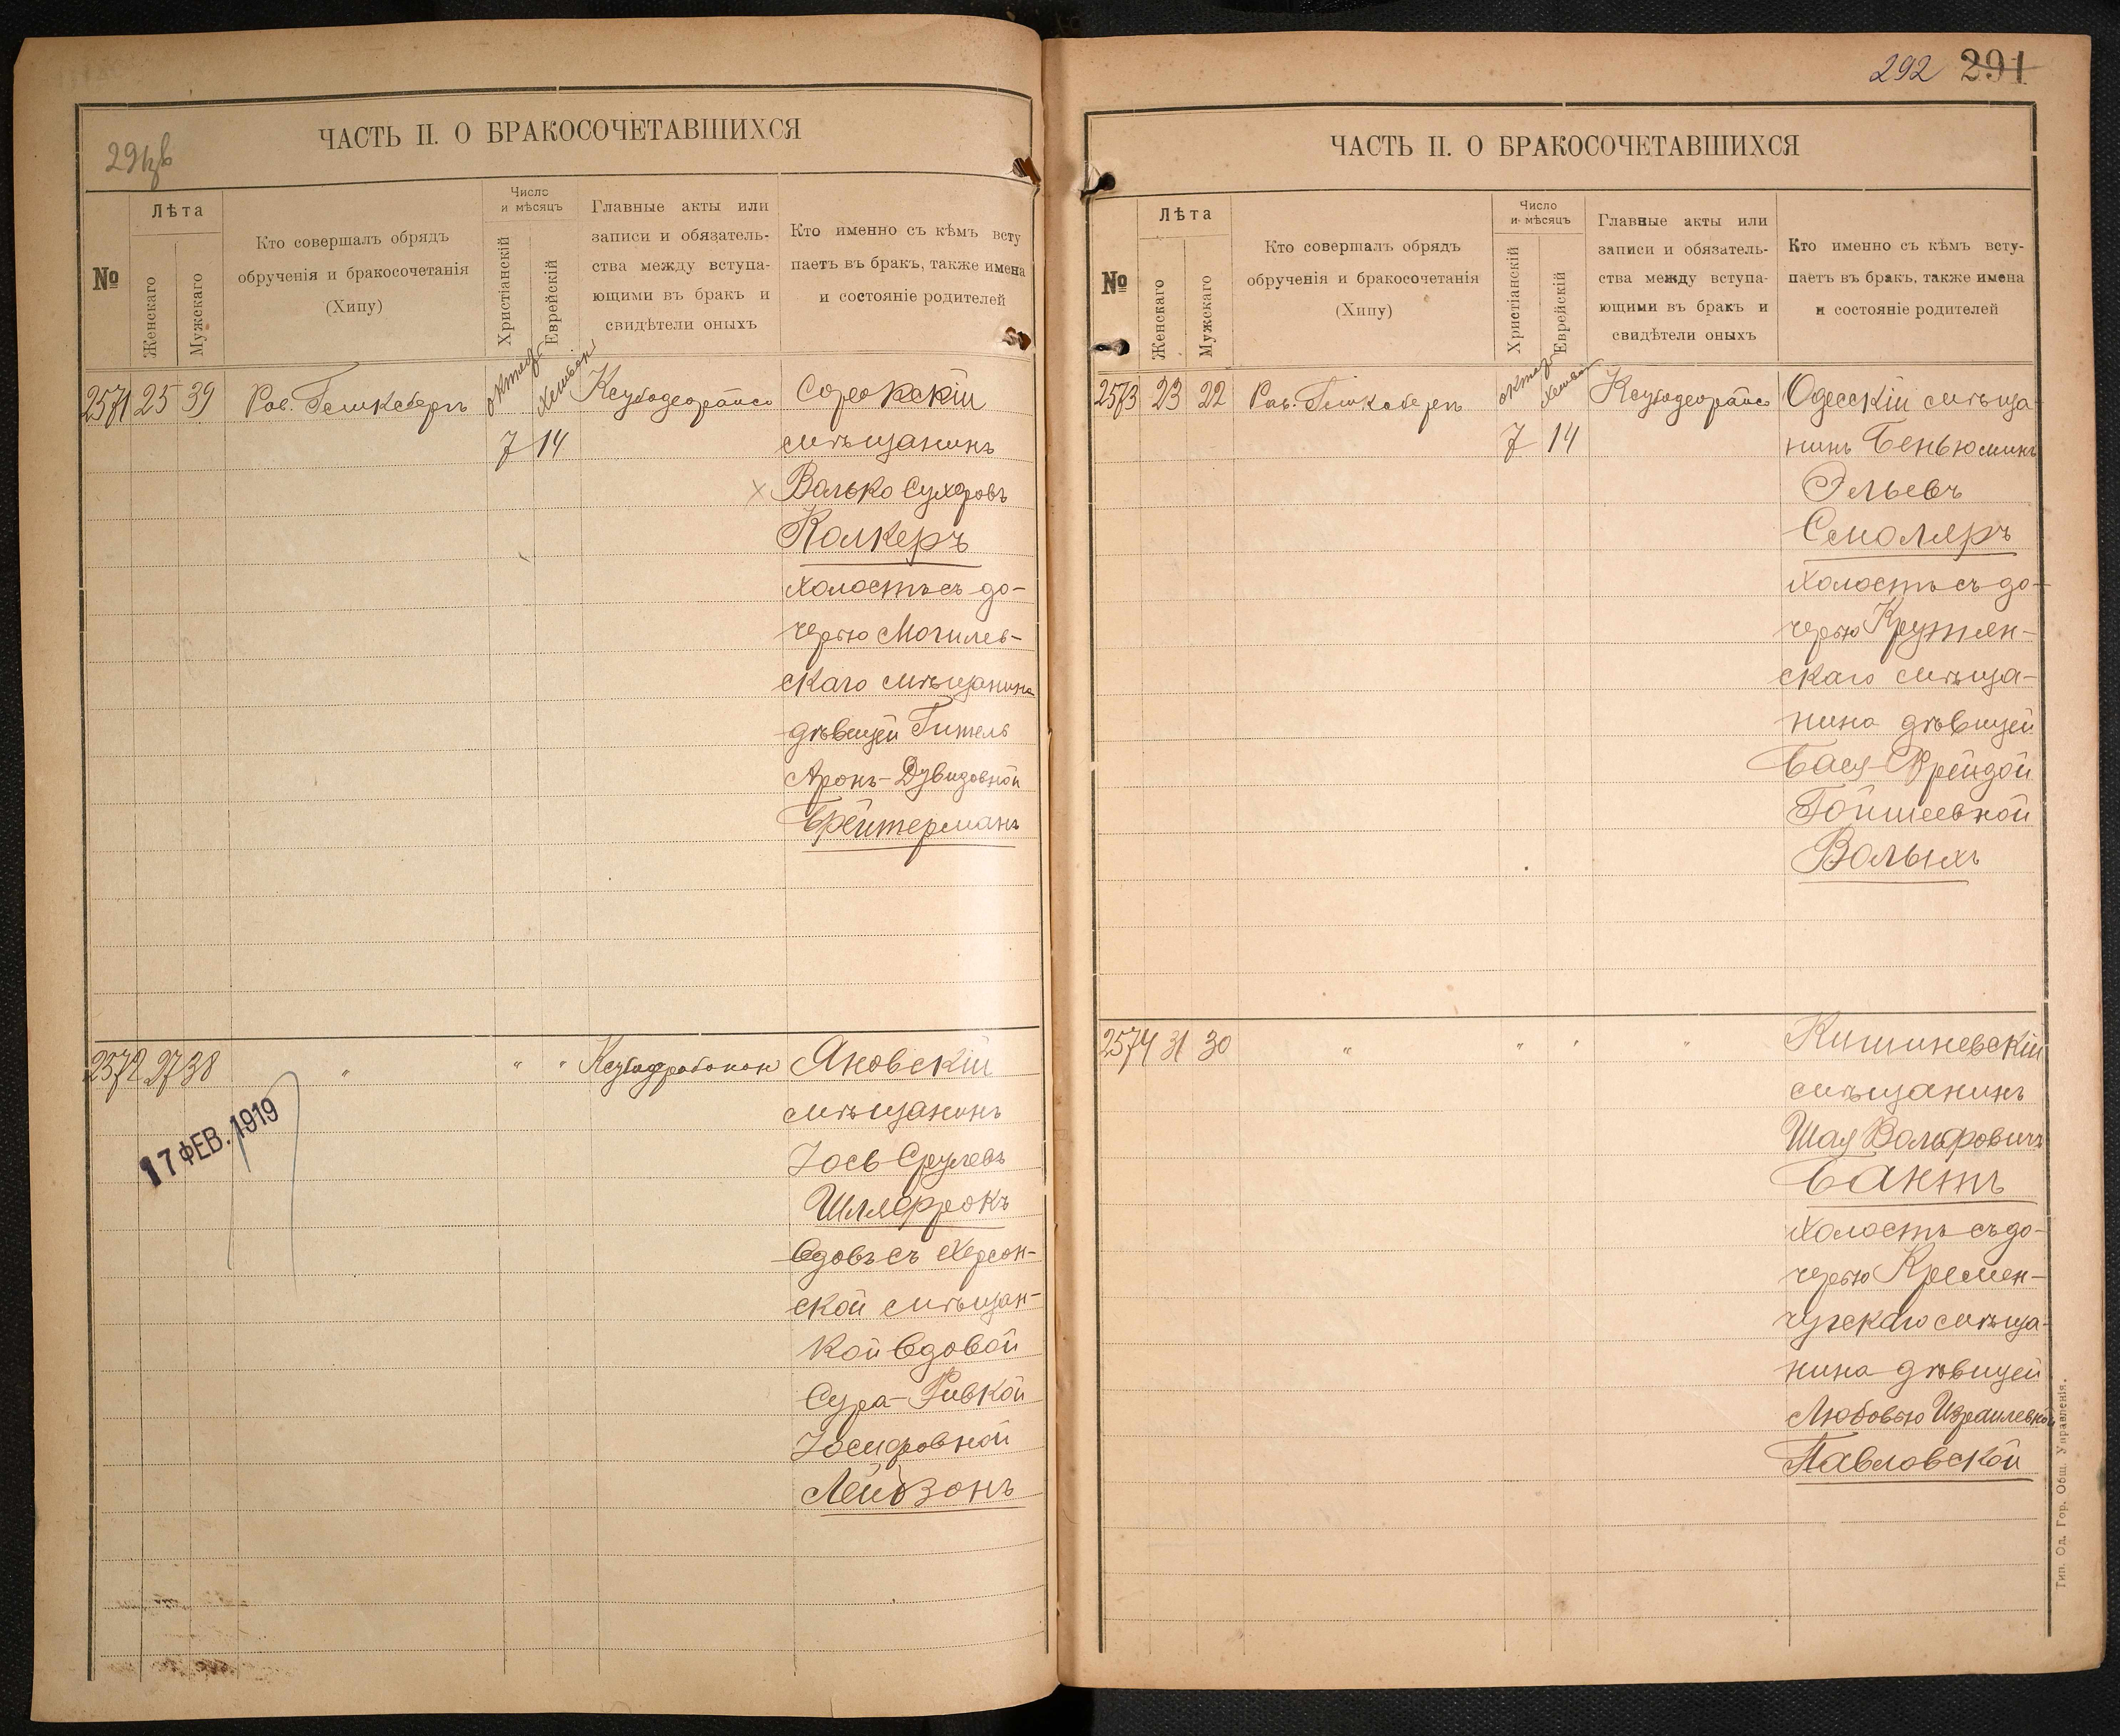 ЧАСТЬ II. О БРАКОСОЧЕТАВШИХСЯ
№
Лѣта
Женскаго
Мужскаго
Кто совершалъ обрядъ
обрученія и бракосочетанія
(Хипу)
Число
и мѣсяцъ
Христіанскій
Еврейскій
Главные акты или
записи и обязатель-
ства между вступа-
ющими въ бракъ и
свидѣтели оныхъ
Кто именно съ кѣмъ всту
паетъ въ бракъ, также имена
и состояніе родителей
2571 25 39
7 14
Сорокскій
мѣщанинъ
Волько Сухеровъ
Колкеръ
холостъ съ до-
черью Могилев-
скаго мѣщанина
дѣвицей Гитель
Аронъ-Дувидовной
Брейтерманъ
2572 27 38
" " "
Яновскій
мѣщанинъ
Іось Срулевъ
Шляфрокъ
вдовъ съ Херсон-
ской мѣщан-
кой вдовой
Сура-Ривкой
Іосифовной
Лейбзонъ
17 ФЕВ. 1919
292 291
ЧАСТЬ II. О БРАКОСОЧЕТАВШИХСЯ
№
Лѣта
Женскаго
Мужскаго
Кто совершалъ обрядъ
обрученія и бракосочетанія
(Хипу)
Число
и мѣсяцъ
Христіанскій
Еврейскій
Главные акты или
записи и обязатель-
ства между вступа-
ющими въ бракъ и
свидѣтели оныхъ
Кто именно съ кѣмъ всту-
паетъ въ бракъ, также имена
и состояніе родителей
2573 23 22
7 14
Одесскій мѣща
нинъ Беньюминъ
Эльевъ
Смоляръ
холостъ съ до-
черью Крутян-
скаго мѣща-
нина дѣвицей
Бася-Фрейдой
Гойшеевной
Волыхъ
2574 31 30
" " " "
Кишиневскій
мѣщанинъ
Шая Вольфовичъ
Бантъ
холостъ съ до-
черью Кремен-
чугскаго мѣща-
нина дѣвицей
Любовью Израилевной
Павловской
Тип. Од. Гор. Общ. Управленія.